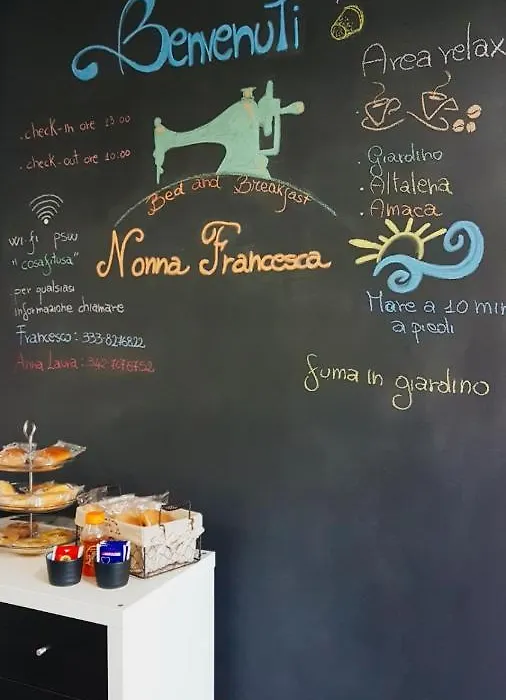 Benvenuti
. check-in ore 13:00
. check-out ore 10:00
Bed and Breakfast
Nonna Francesca
wi-fi psw
"cosafitusa"
per qualsiasi
informazione chiamare
Francesco: 333-8276822
Anna Laura: 342-7676752
Area relax
. Giardino
. Altalena
. Amaca
Mare a 10 min
a piedi
fuma in giardino